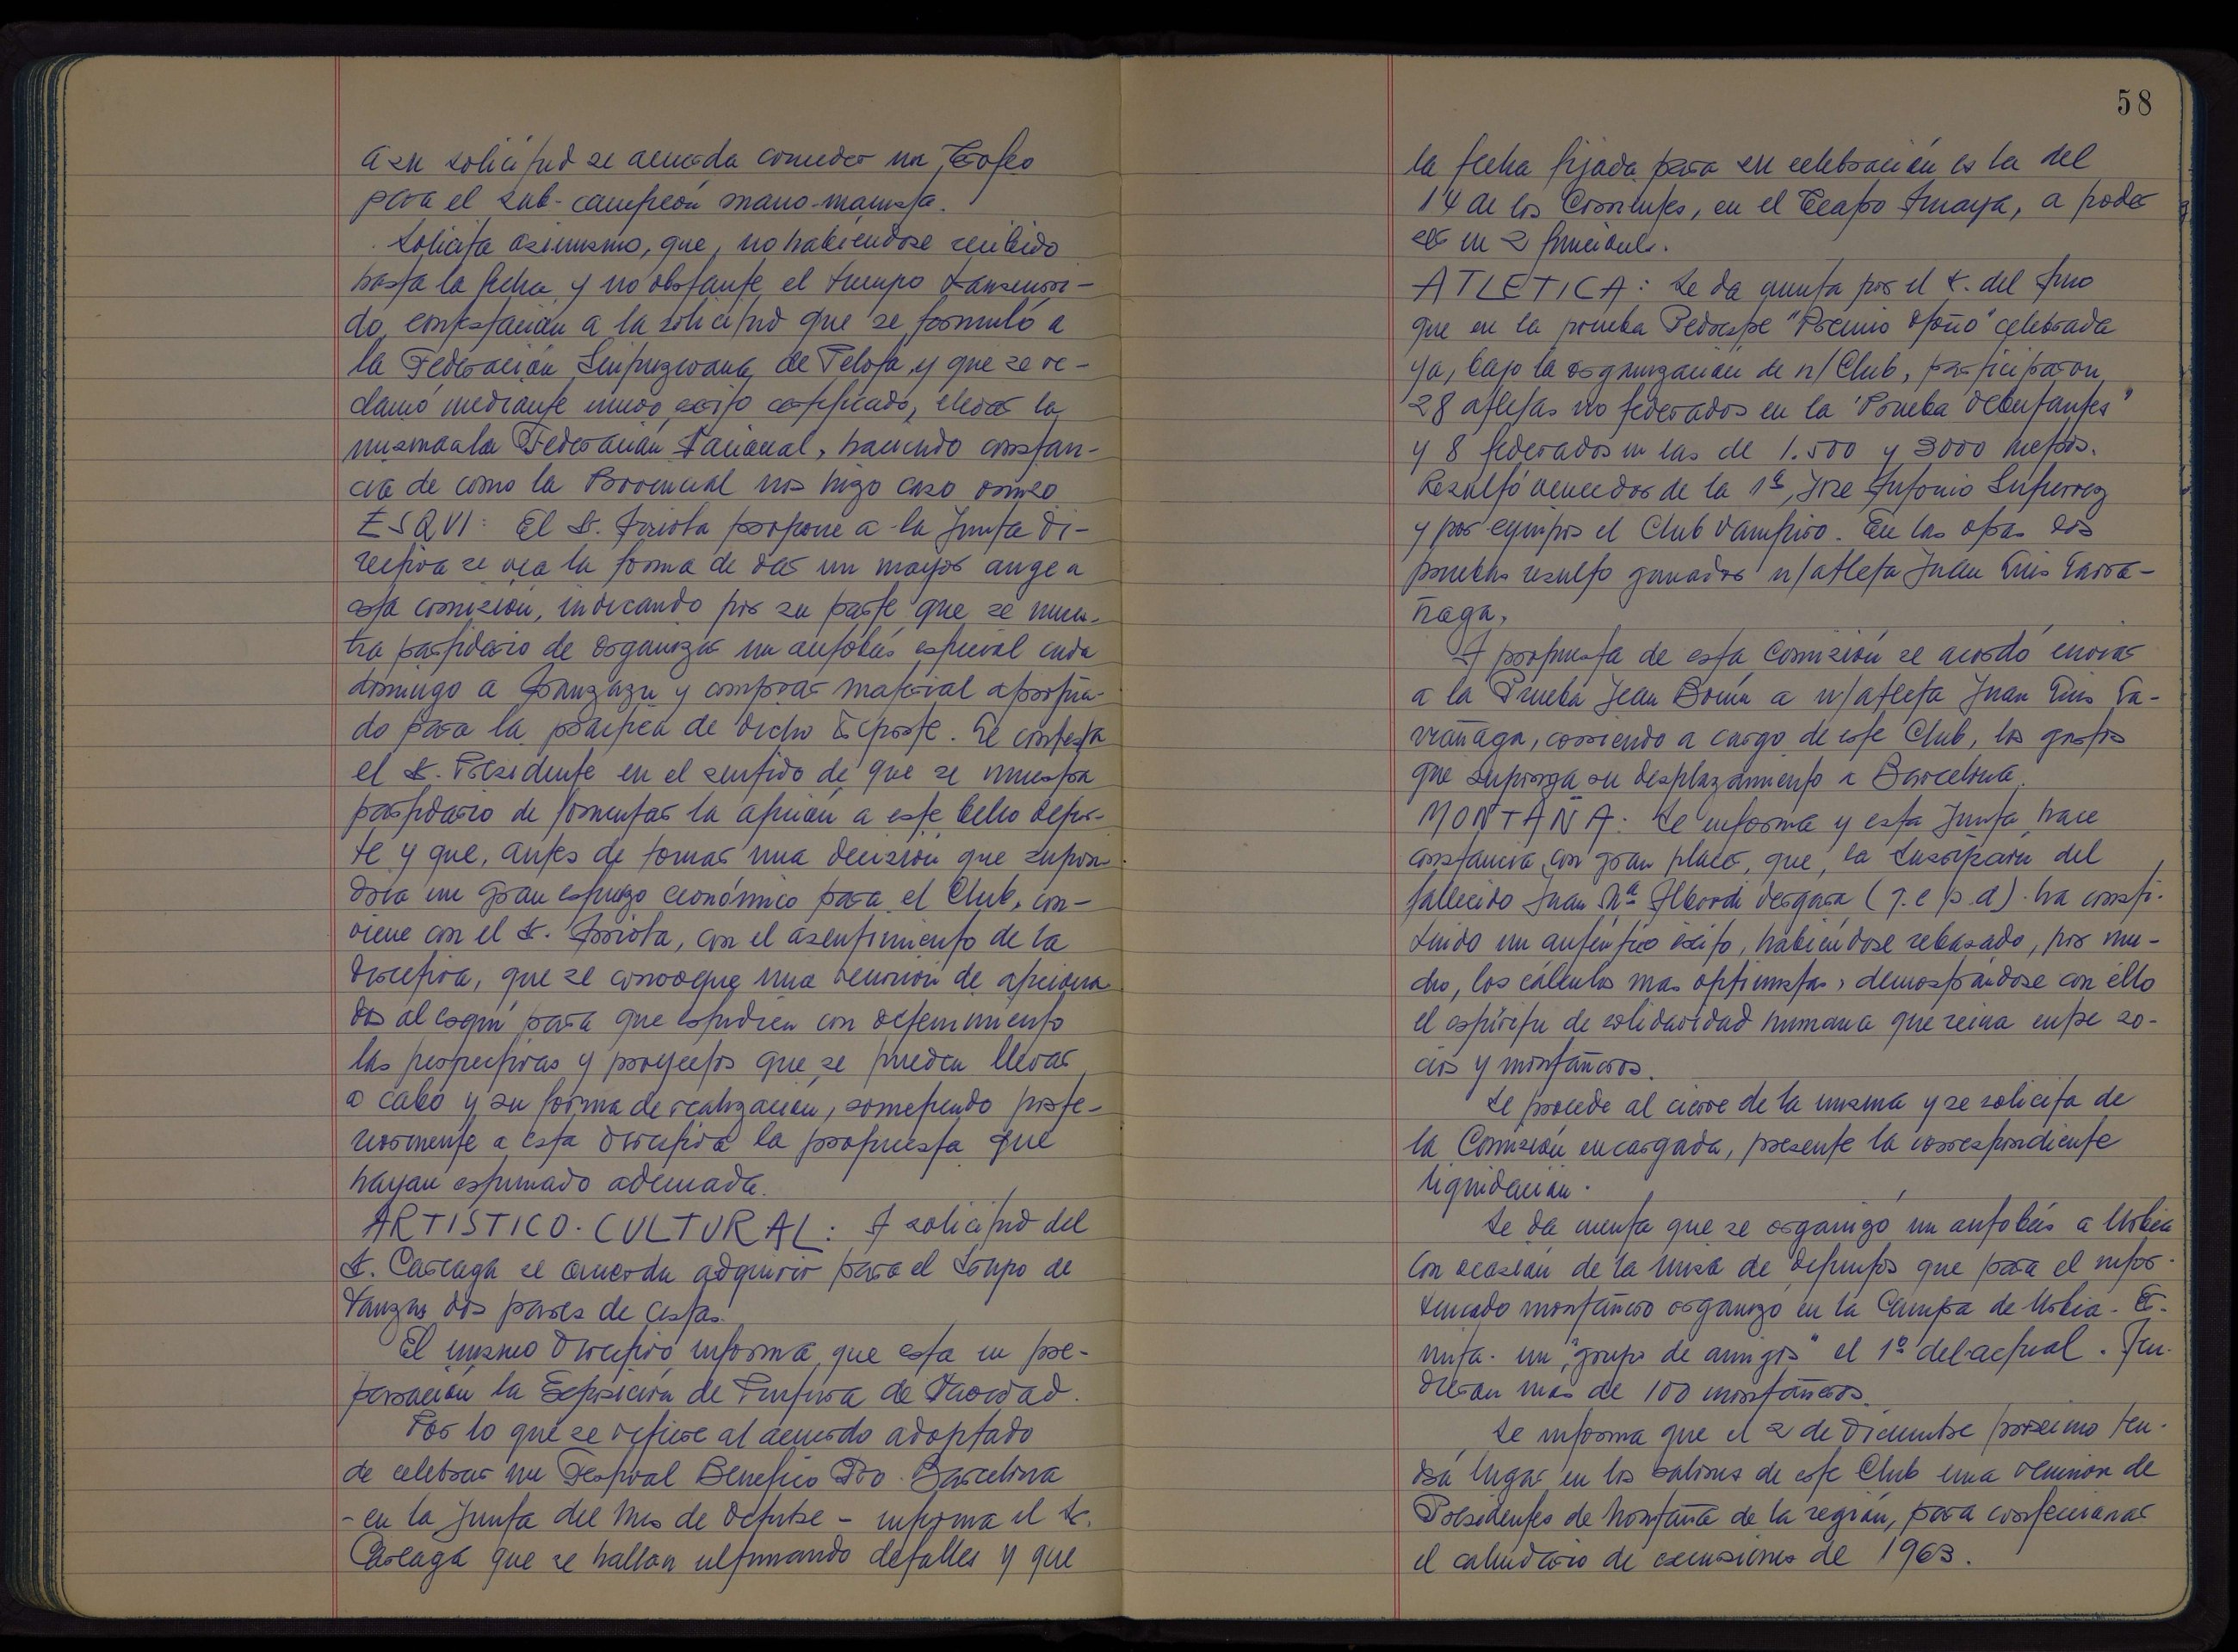 a su solicitud se acuerda conceder un Trofeo
para el sub-campeón mano-manista.
Solicita asimismo, que, no habiendose recibido
hasta la fecha y no obstante el tiempo transcurri-
do, contestación a la solicitud que se formuló a
la Federación Guipuzcoana de Pelota, y que se re-
clamó mediante nuevo escrito certificado, elevar la
misma a la Federación Nacional, haciendo constan-
cia de como la Provincial nos hizo caso omiso
ESQVI: El Sr. Arriola propone a la Junta Di-
rectiva se vea la forma de dar un mayor auge a
esta comisión, indicando por su parte que se mues-
tra partidario de organizar un autobús especial cada
domingo a Aranzazu y comprar material apropia-
do para la práctica de dicho Deporte. Le contesta
el Sr. Presidente en el sentido de que se muestra
partidario de fomentar la afición a este bello depor-
te y que, antes de tomar una decisión que supon-
dría un gran esfuerzo económico para el Club, con-
viene con el Sr. Arriola, con el asentimiento de la
Directiva, que se convoque una reunión de aficiona-
dos al esquí para que estudien con detenimiento
las perspectivas y proyectos que se pueden llevar
a cabo y su forma de realización, sometiendo poste-
riormente a esta Directiva la propuesta que
hayan estimado adecuada.
ARTÍSTICO-CULTURAL: A solicitud del
Sr. Careaga se acuerda adquirir para el Grupo de
Danzas dos pares de cestas.
El mismo Directivo informa, que esta en pre-
paración la Exposición de Pintura de Navidad.
Por lo que se refiere al acuerdo adoptado
de celebrar un Festival Benefico Pro-Barcelona
- en la Junta del mes de Octubre - informa el Sr.
Careaga que se hallan ultimando detalles y que
58
la fecha fijada para su celebración es la del
14 de los Corrientes, en el Teatro Amaya, a poder
ser en 2 funciones.
ATLETICA: Se da cuenta por el Sr. del Amo
que en la prueba Pedestre "Premio Otoño" celebrada
ya, bajo la organización de n/Club, participaron
28 atletas no federados en la "Prueba Debutantes"
y 8 federados en las de 1.500 y 3000 metros.
Resultó vencedor de la 1ª, Jose Antonio Gutierrez
y por equipos el Club Vampiro. En las otras dos
pruebas resulto ganador n/atleta Juan Luis Larra-
ñaga.
A propuesta de esta Comisión se acordó enviar
a la Prueba Jean Bouin a n/atleta Juan Luis La-
rrañaga, corriendo a cargo de este Club, los gastos
que suponga su desplazamiento a Barcelona.
MONTAÑA: Se informa y esta Junta hace
constancia con gran placer, que, la suscripción del
fallecido Juan Mª Alberdi Vergara (q.e.p.d). ha consti-
tuido un auténtico éxito, habiéndose rebasado, por mu-
cho, los cálculos mas optimistas, demostrándose con ello
el espíritu de solidaridad humana que reina entre so-
cios y montañeros.
Se procede al cierre de la misma y se solicita de
la Comisión encargada, presente la correspondiente
liquidación.
Se da cuenta que se organizó un autobús a Urbia
con ocasión de la Misa de Difuntos que para el infor-
tunado montañero organizo en la Campa de Urbia-Er-
mita- un "grupo de amigos" el 1º del actual. Acu-
dieron mas de 100 montañeros.
Se informa que el 2 de Diciembre próximo ten-
drá lugar en los salones de este Club una reunion de
Presidentes de Montaña de la región, para confeccionar
el calendario de excursiones de 1963.